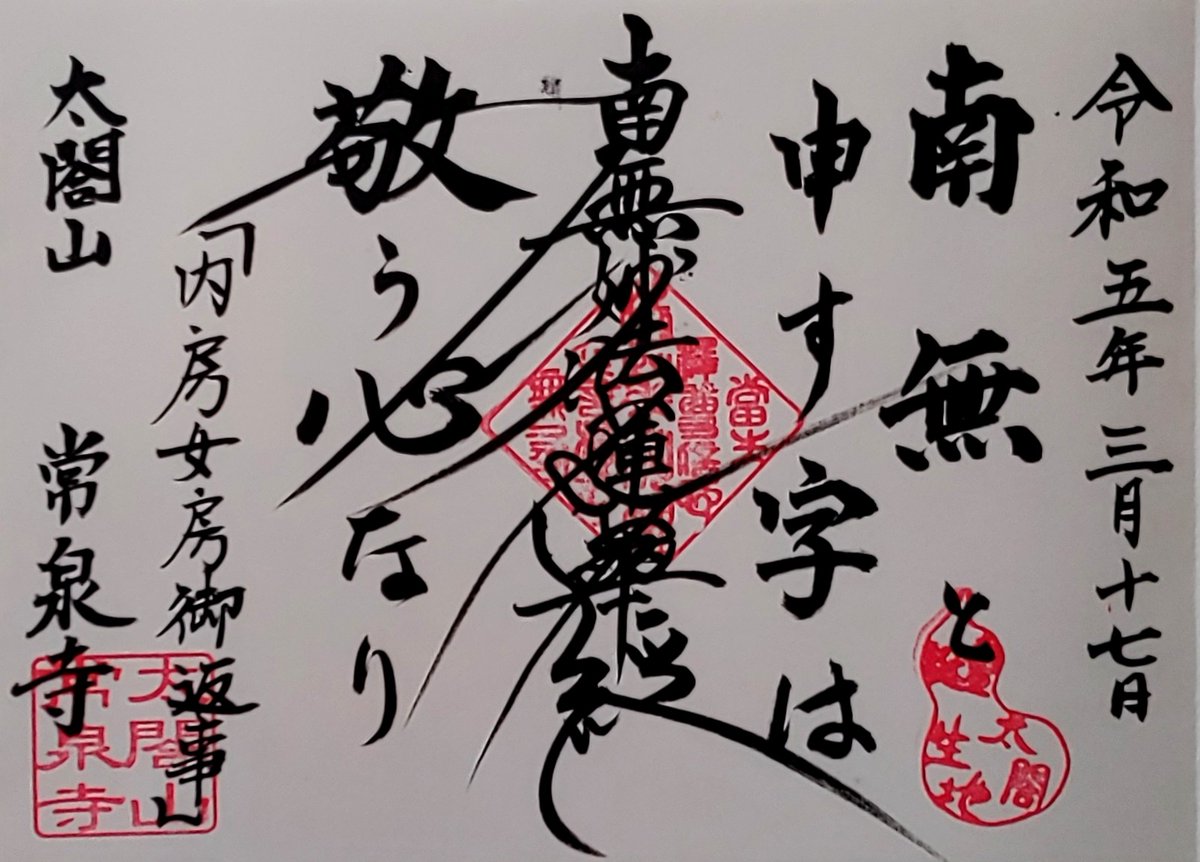 令和五年三月十七日
南無と
申す字は
南無妙法蓮華経
敬う心なり
「内房女房御返事」
太閤山 常泉寺
太閤
生地
太閤山
常泉寺